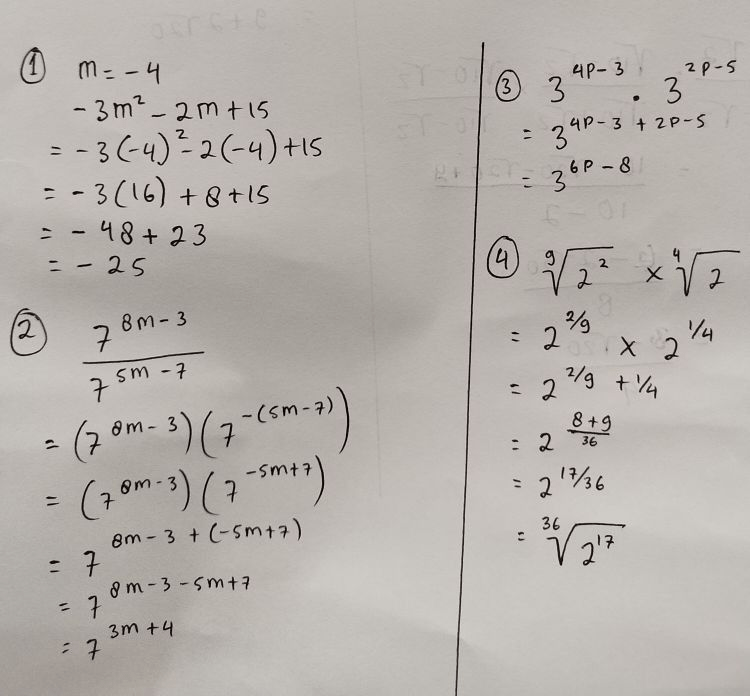 ① m = -4
-3m² - 2m + 15
= -3(-4)² - 2(-4) + 15
= -3(16) + 8 + 15
= -48 + 23
= -25
② 7^(8m-3)
/ 7^(5m-7)
= (7^(8m-3))(7^(-(5m-7)))
= (7^(8m-3))(7^(-5m+7))
= 7^(8m-3+(-5m+7))
= 7^(8m-3-5m+7)
= 7^(3m+4)
③ 3^(4p-3) · 3^(2p-5)
= 3^(4p-3+2p-5)
= 3^(6p-8)
④ ⁹√(2²) × ⁴√2
= 2^(2/9) × 2^(1/4)
= 2^(2/9+1/4)
= 2^((8+9)/36)
= 2^(17/36)
= ³⁶√(2¹⁷)